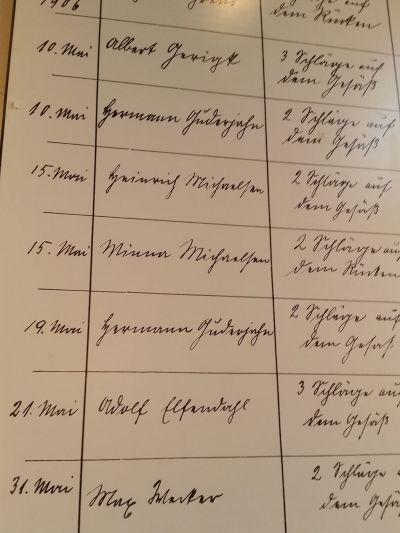 1906
dem Rücken
10. Mai Albert Gerigk 3 Schläge auf
dem Gesäß
10. Mai Hermann Guderjahn 2 Schläge auf
dem Gesäß
15. Mai Heinrich Michaelsen 2 Schläge auf
dem Gesäß
15. Mai Minna Michaelsen 2 Schläge auf
dem Rücken
19. Mai Hermann Guderjahn 2 Schläge auf
dem Gesäß
21. Mai Adolf Elfendahl 3 Schläge auf
dem Gesäß
31. Mai Max Werker 2 Schläge auf
dem Gesäß